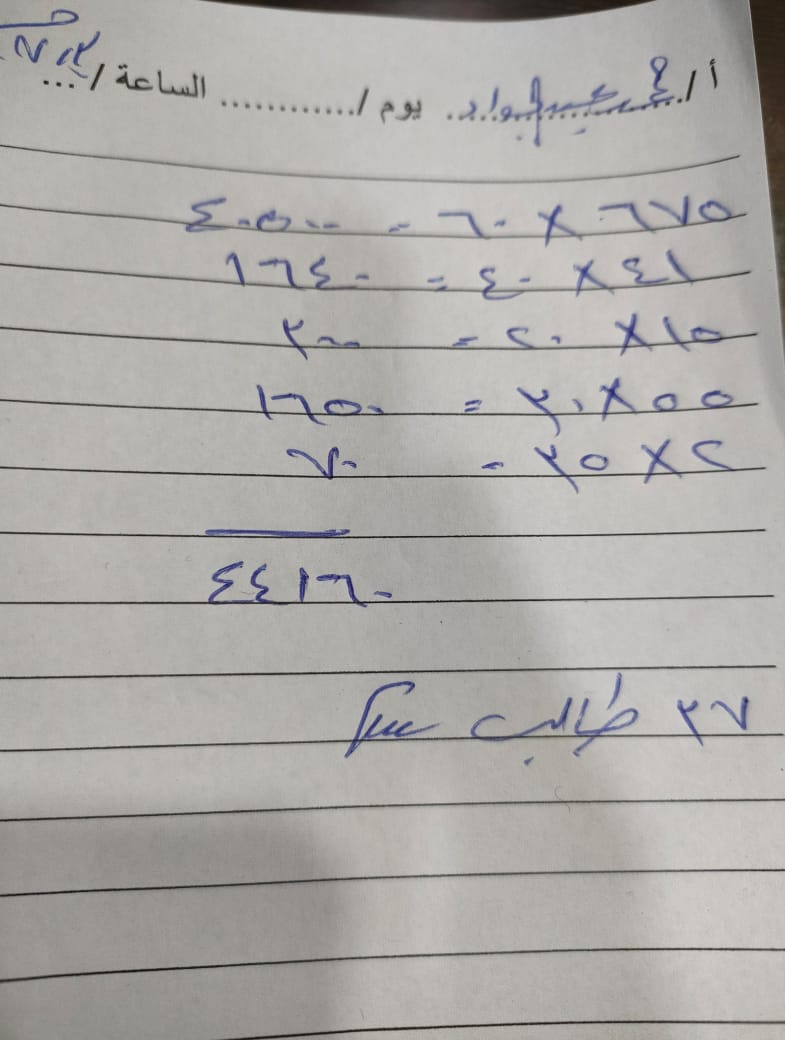 أ/ عبدالجواد يوم /............ الساعة /...
٦٧٥ × ٦٠ = ٤٠٥٠٠
٤١ × ٤٠ = ١٦٤٠
١٥ × ٢٠ = ٣٠٠
٥٥ × ٣٠ = ١٦٥٠
٢ × ٣٥ = ٧٠
٤٤١٦٠
٣٧ طالب